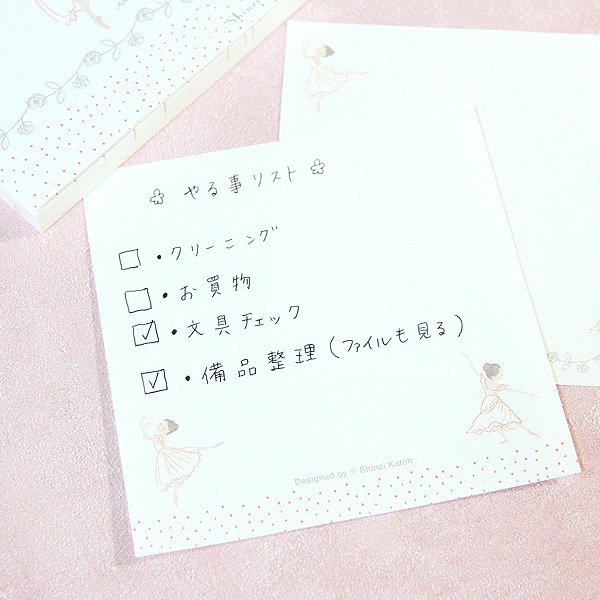 ✿ やる事リスト ✿
□ ・クリーニング
□ ・お買物
☑ ・文具チェック
☑ ・備品整理(ファイルも見る)
Designed by © Shinzi Katoh